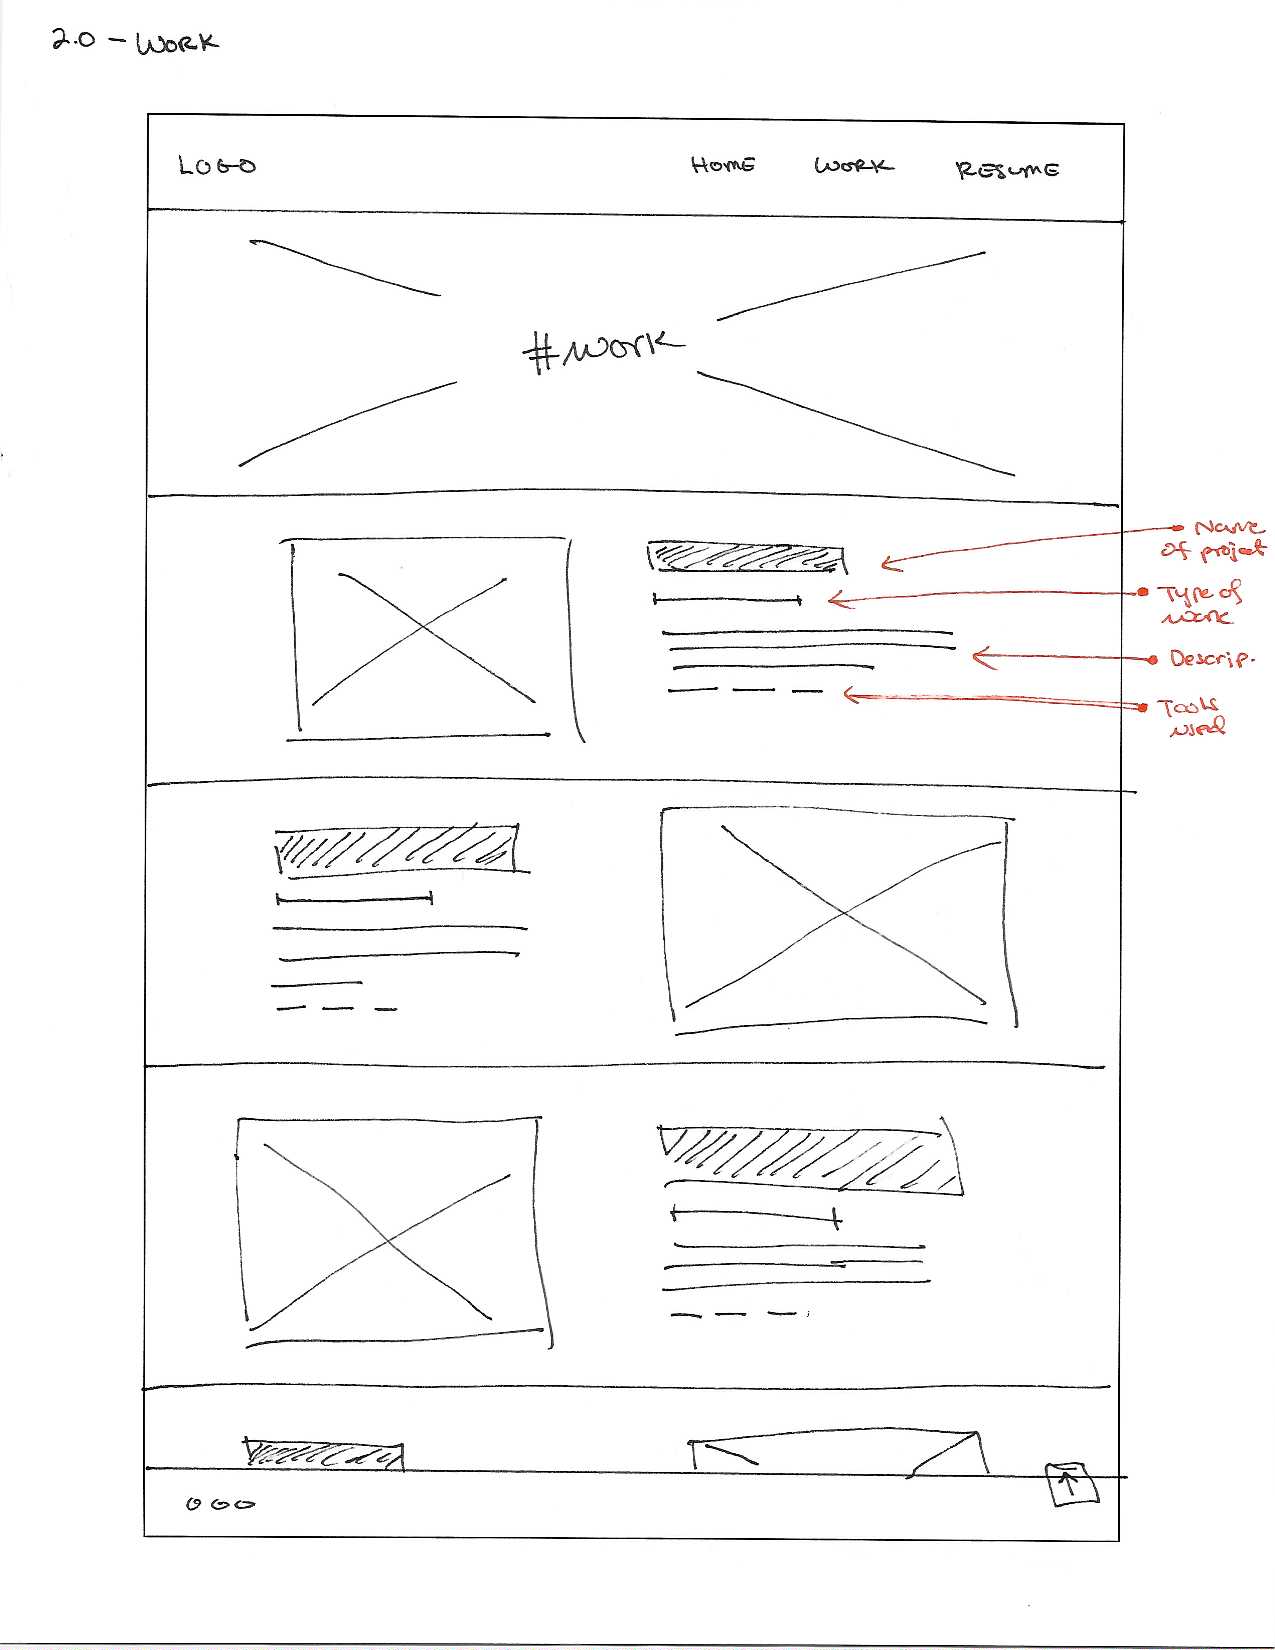 2.0 - WORK
LOGO HOME WORK RESUME
#work
Name
of project
Type of
work
Descrip.
Tools
used